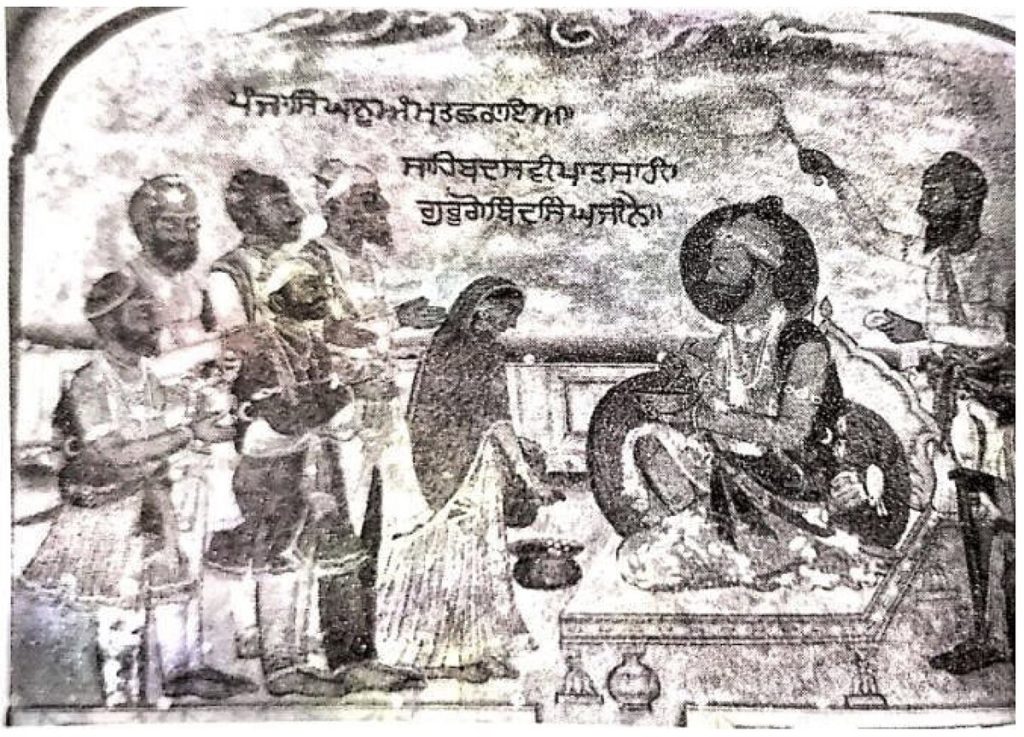 ਪੰਜਾਸਿੰਘਨੂਅੰਮ੍ਰਤਛਕਾਇਆ॥
ਸਾਹਿਬਦਸਵੀਪਾਤਸਾਹੀ
ਗੁਰੁਗੋਬਿੰਦਸਿੰਘਜੀਨੇ॥